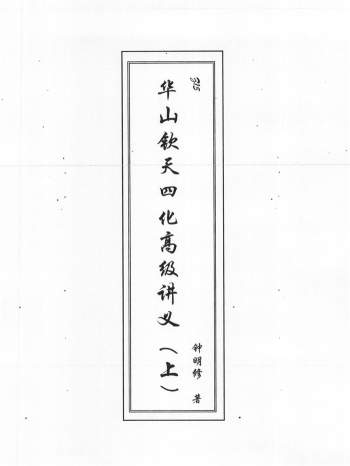 华山钦天四化高级讲义（上）
钟明修 著